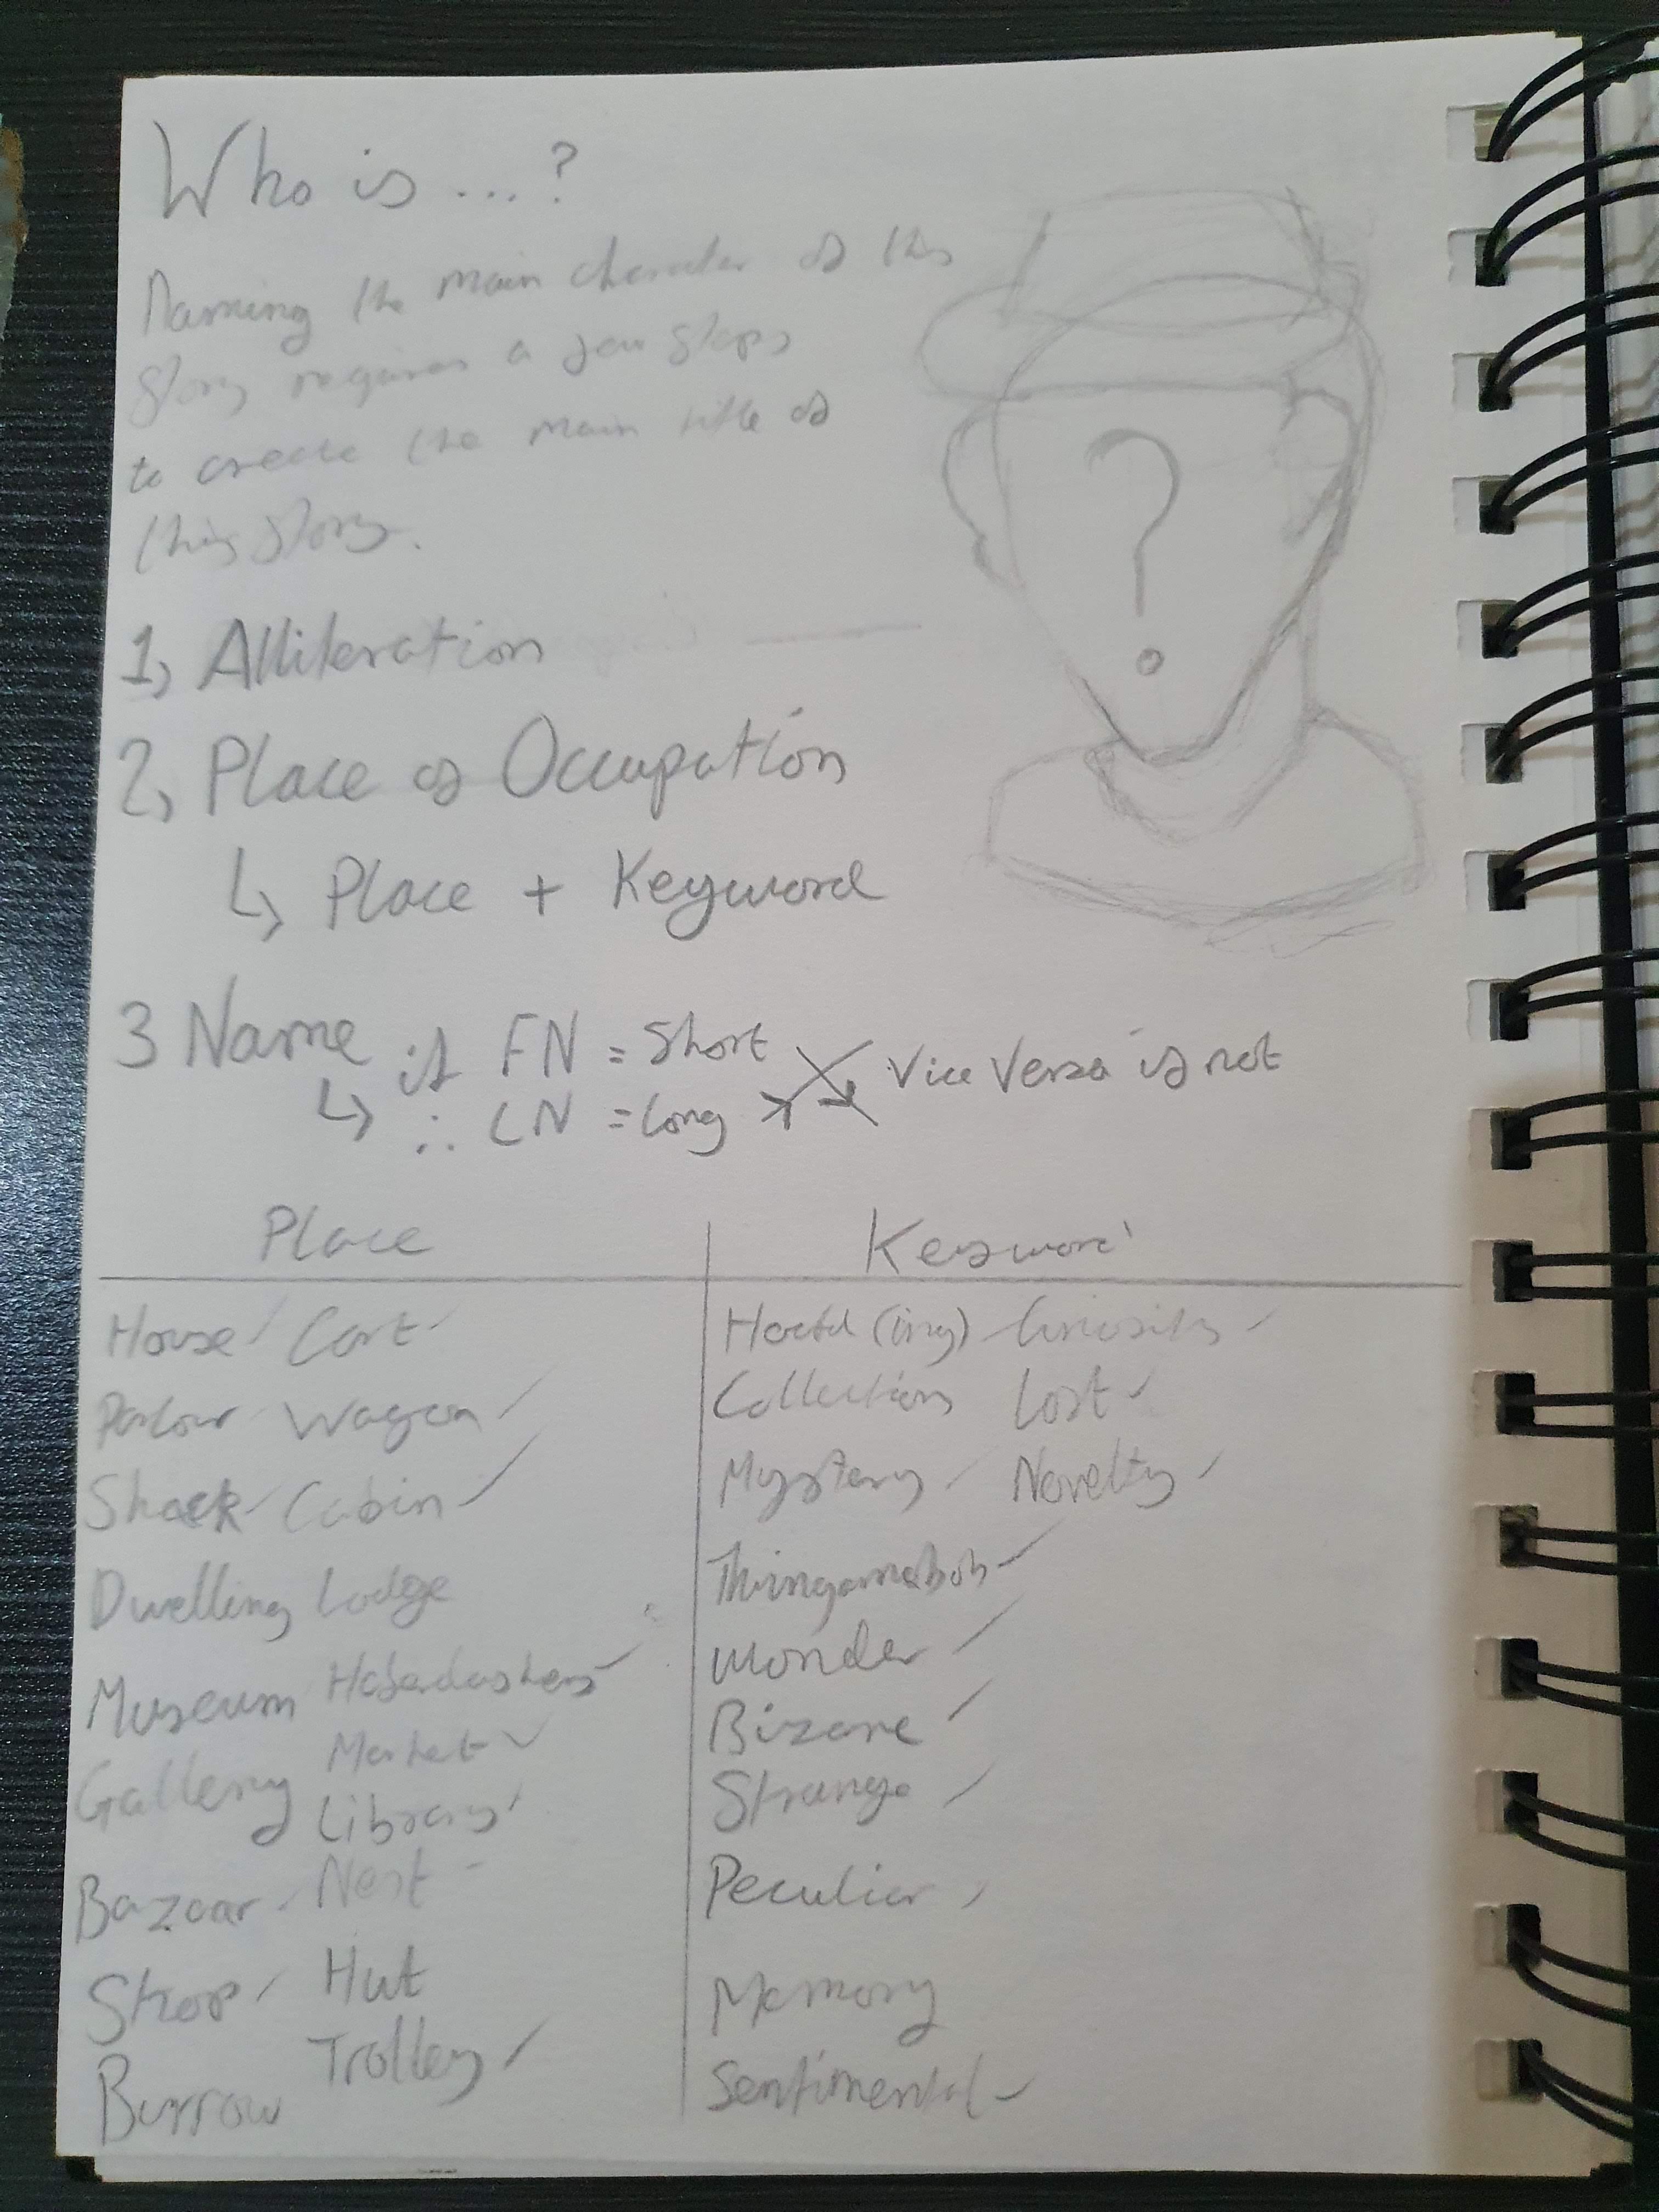 Who is ...?
Naming the main character of this
story requires a few steps
to create the main title of
this story.
1, Alliteration
2, Place of Occupation
↳ Place + Keyword
3 Name if FN = Short
↳ ∴ LN = Long Vice Versa is not
Place Keyword
House Cart
Parlour Wagon
Shack Cabin
Dwelling Lodge
Museum Haberdashery
Gallery Market
Library
Bazaar Nest
Shop Hut
Burrow Trolley
(ing) Curiosity
Collection Lost
Mystery Novelty
Thingamabob
Wonder
Bizarre
Strange
Peculiar
Memory
Sentimental